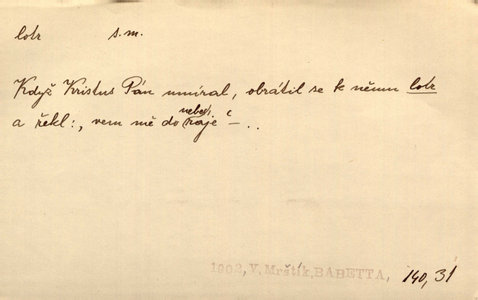 lotr s.m.
Když Kristus Pán umíral, obrátil se k němu lotr
a řekl: ‚vem mě do ráje‘ – ..
1902, V. Mrštík, BABETTA, 140, 31